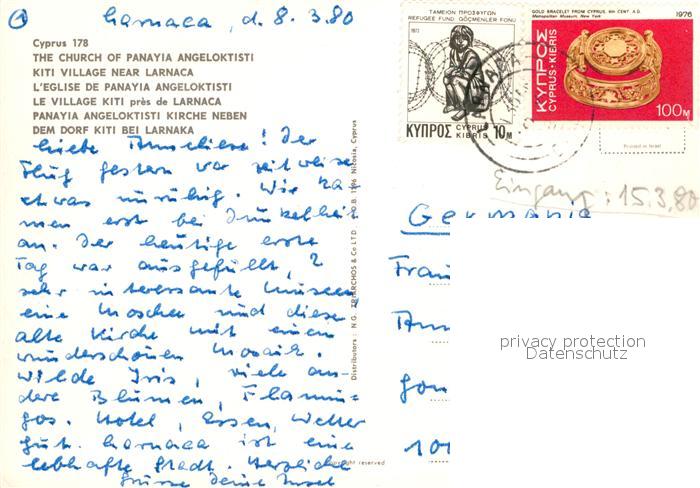 ① Larnaca, d. 8.3.80
Cyprus 178
THE CHURCH OF PANAYIA ANGELOKTISTI
KITI VILLAGE NEAR LARNACA
L'EGLISE DE PANAYIA ANGELOKTISTI
LE VILLAGE KITI près de LARNACA
PANAYIA ANGELOKTISTI KIRCHE NEBEN
DEM DORF KITI BEI LARNAKA
Liebe Anneliese! Der
Flug gestern war zeitweise
etwas unruhig. Wir ka-
men erst bei Dunkelheit
an. Der heutige erste
Tag war ausgefüllt, 2
sehr interessante Museen,
eine Moschee und diese
alte Kirche mit einem
wunderschönen Mosaik.
Wilde Iris, viele an-
dere Blumen, Flamin-
gos. Hotel, Essen, Wetter
gut. Larnaca ist eine
lebhafte Stadt. Herzliche
Grüsse Deine Insel
Distributors: N.G. & Co LTD P.O.B. Nicosia, Cyprus
reserved
ΤΑΜΕΙΟΝ ΠΡΟΣΦΥΓΩΝ
REFUGEE FUND GÖÇMENLER FONU
1977
ΚΥΠΡΟΣ CYPRUS KIBRIS 10M
GOLD BRACELET FROM CYPRUS, 6th CENT. A.D. 1976
Metropolitan Museum, New York
ΚΥΠΡΟΣ
CYPRUS·KIBRIS
100M
Printed in Israel
Eingang: 15.3.80
Germania
Frau
Ann
10
privacy protection
Datenschutz